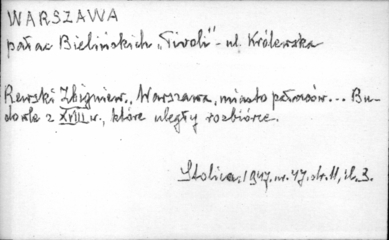 WARSZAWA
pałac Bielińskich „Tivoli" - ul. Królewska
Rewski Zbigniew, Warszawa, miasto pałaców... Bu-
dowle z XVIII w., które uległy rozbiórce.
Stolica 1947. nr. 47. str. 11, il. 3.